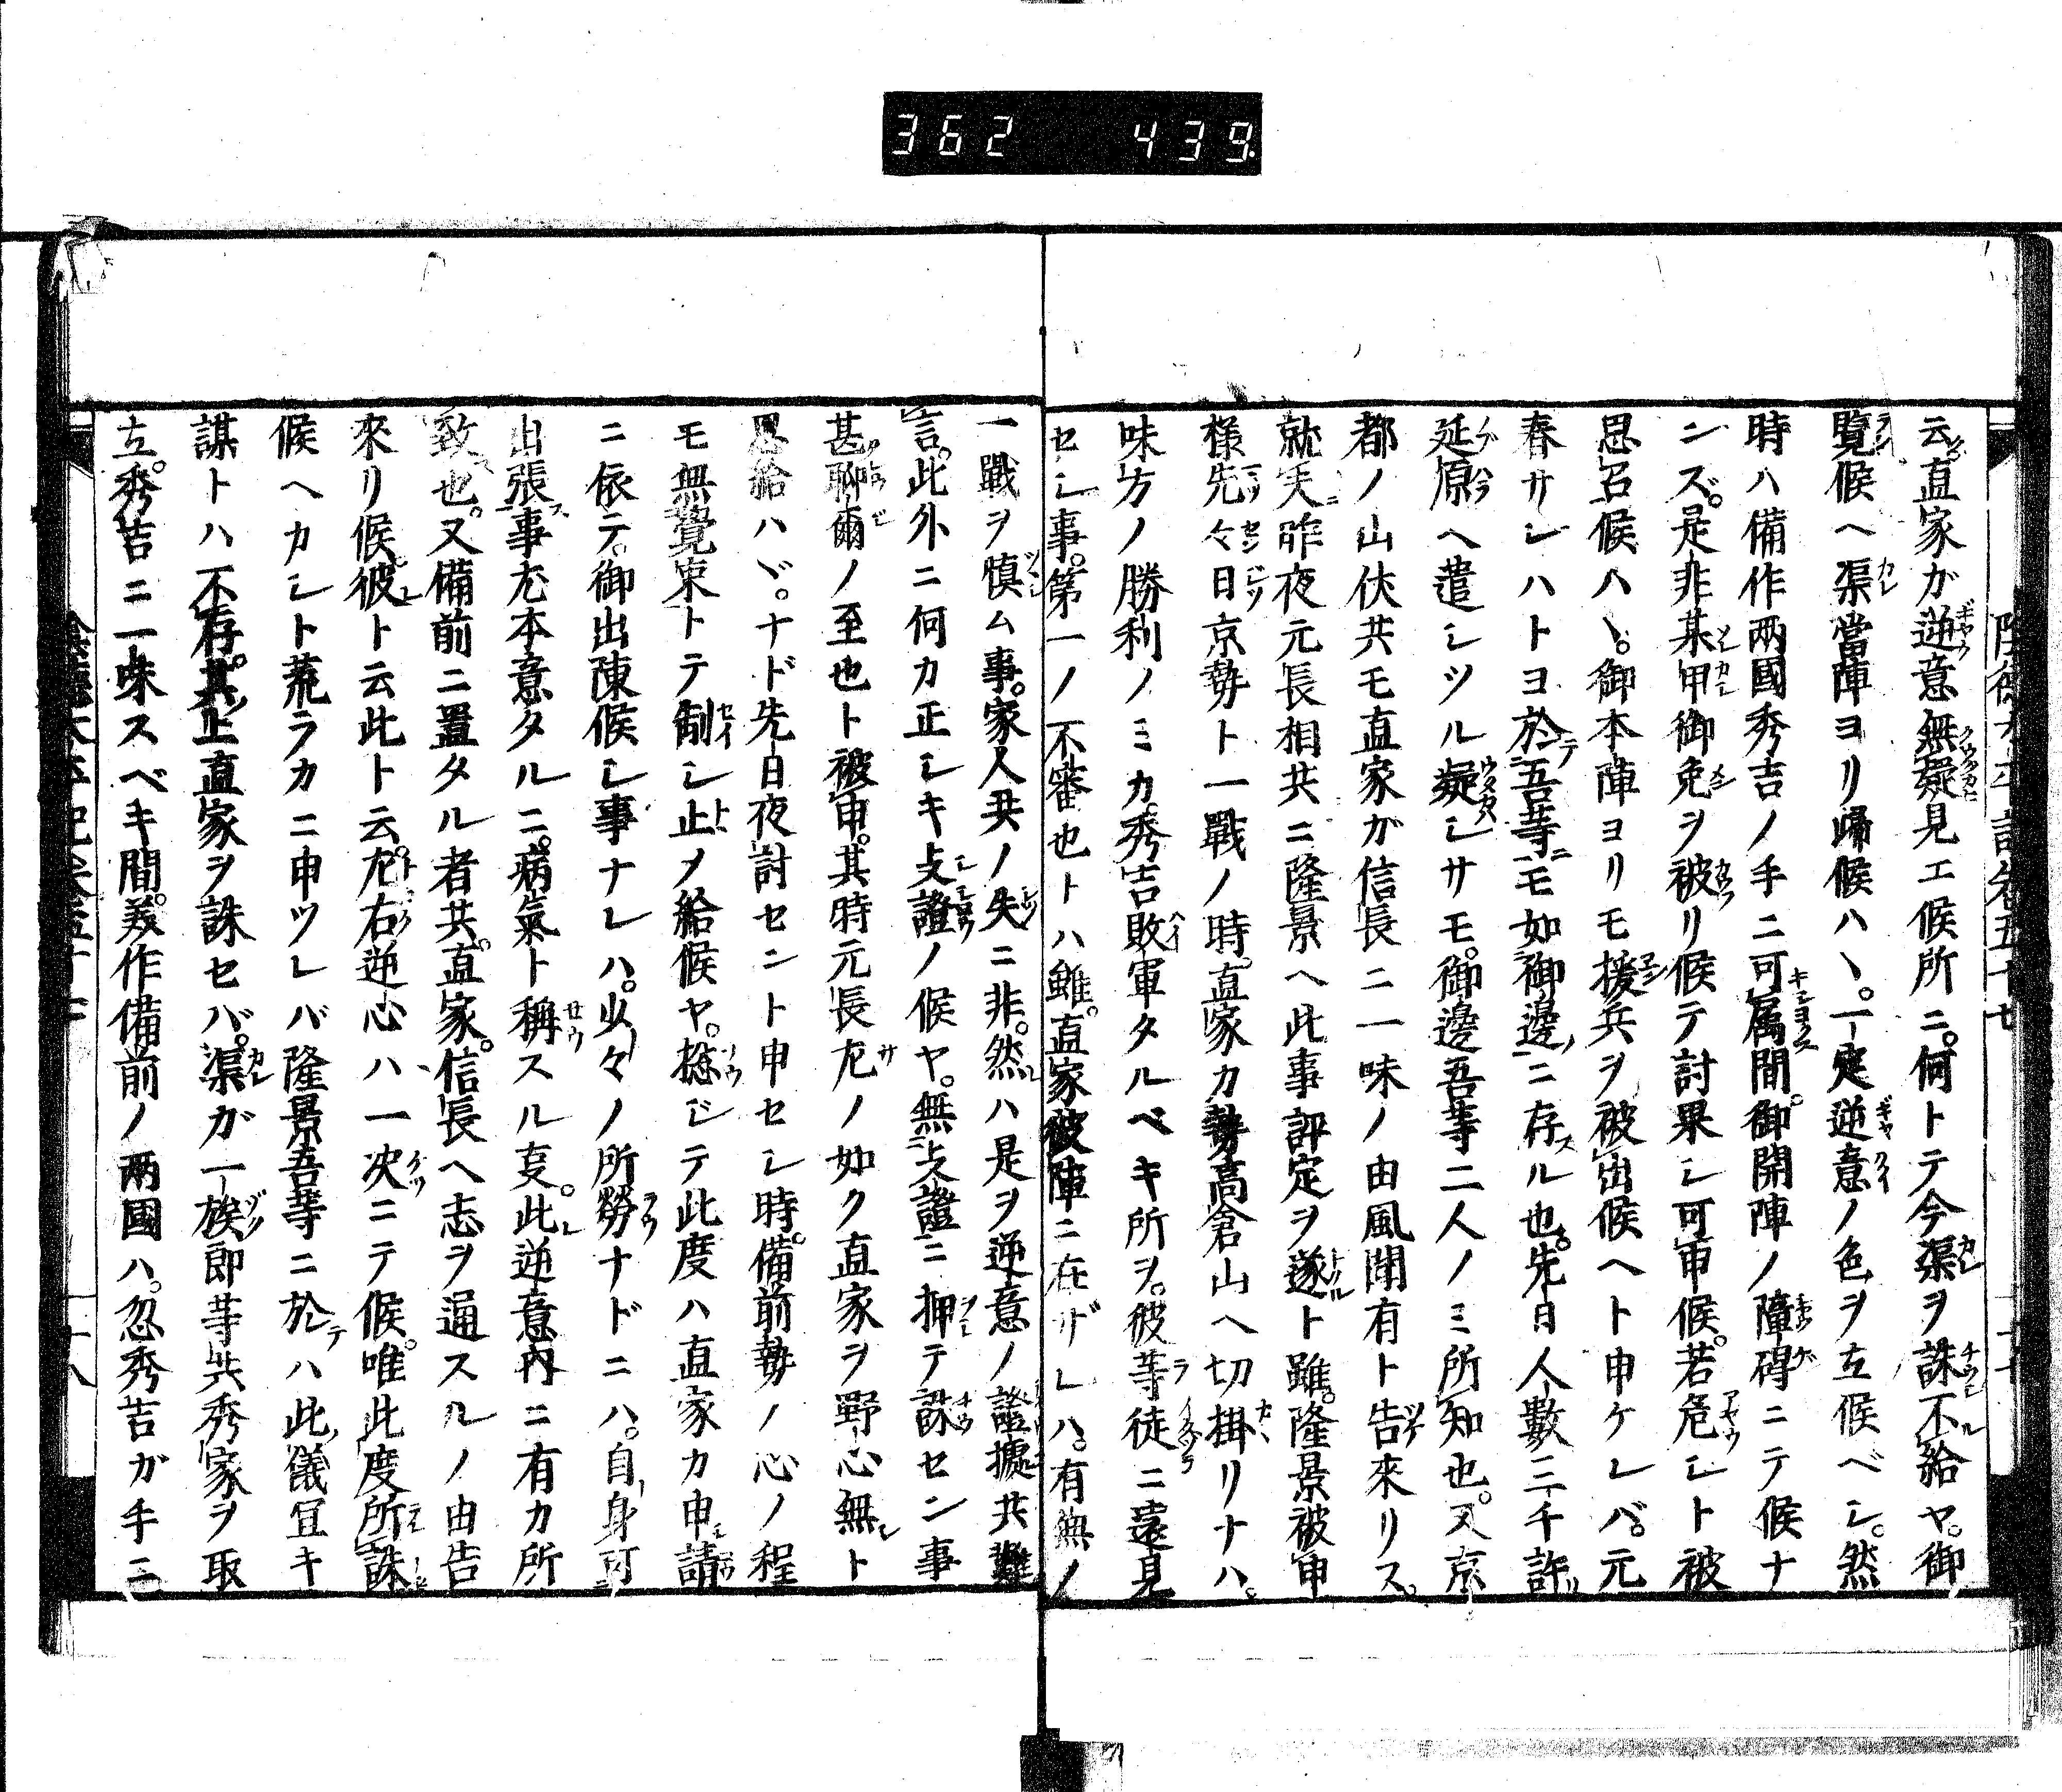 362 439
云。直家ガ逆意無疑見エ候所ニ。何トテ今渠ヲ誅不給ヤ。御
覧候ヘ渠當陣ヨリ歸候ハヽ。一定逆意ノ色ヲ立候ベシ。然
時ハ備作两國秀吉ノ手ニ可属間。御開陣ノ障碍ニテ候ナ
ンズ。是非某甲御免ヲ被リ候テ討果シ可申候。若危シト被
思召候ハヽ。御本陣ヨリモ援兵ヲ被出候ヘト申ケレバ。元
春サレハトヨ於吾等モ如御邊ニ存ル也。先日人數三千許
延原ヘ遣シツル疑シサモ。御邊吾等二人ノミ所知也。又京
都ノ山伏共モ直家ガ信長ニ一味ノ由風聞有ト告來リス。
就夫昨夜元長相共ニ隆景ヘ此事評定ヲ遂ト雖。隆景被申
様先々日京勢ト一戰ノ時。直家カ勢高倉山ヘ切掛リナハ。
味方ノ勝利ノミカ。秀吉敗軍タルベキ所ヲ。彼等徒ニ遠見
セシ事。第一ノ不審也トハ雖。直家被陣ニ在ザレハ。有無ノ
一戰ヲ慎ム事。家人共ノ失ニ非。然ハ是ヲ逆意ノ證據共難
言。此外ニ何カ正シキ支證ノ候ヤ。無支證ニ押テ誅セン事
甚聊爾ノ至也ト被申。其時元長尤ノ如ク直家ヲ野心無ト
思給ハヾ。ナド先日夜討セント申セシ時。備前勢ノ心ノ程
モ無覺束トテ制シ止メ給候ヤ。惣ジテ此度ハ直家カ申請
ニ依テ。御出陳候シ事ナレハ。少々ノ所勞ナドニハ。自身可
出張事尤本意タルニ。病氣ト稱スル支。此逆意内ニ有カ所
致也。又備前ニ置タル者共。直家。信長ヘ志ヲ通スルノ由告
來リ候。彼ト云此ト云。尤右逆心ハ一决ニテ候。唯此度所誅
候ヘカシト荒ラカニ申ツレバ隆景吾等ニ於ハ此儀宜キ
謀トハ不存。其上直家ヲ誅セバ。渠ガ一族郎等共秀家ヲ取
立。秀吉ニ一味スベキ間。美作備前ノ两國ハ。忽秀吉ガ手ニ